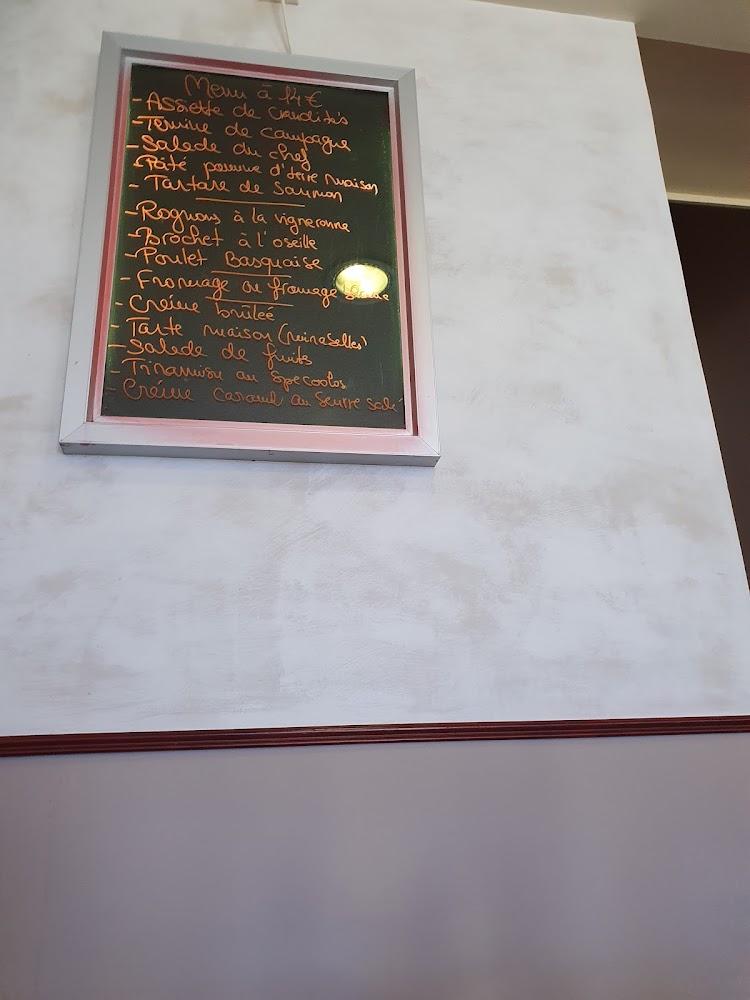 Menu à 14€
- Assiette de crudités
- Terrine de campagne
- Salade du chef
- Pâté pomme d'terre maison
- Tartare de Saumon
- Rognons à la vigneronne
- Brochet à l'oseille
- Poulet Basquaise
- Fromage ou fromage blanc
- Crème brûleé
- Tarte maison (mirabelles)
- Salade de fruits
- Tiramisu au Spéculos
- Crème caramel au beurre salé